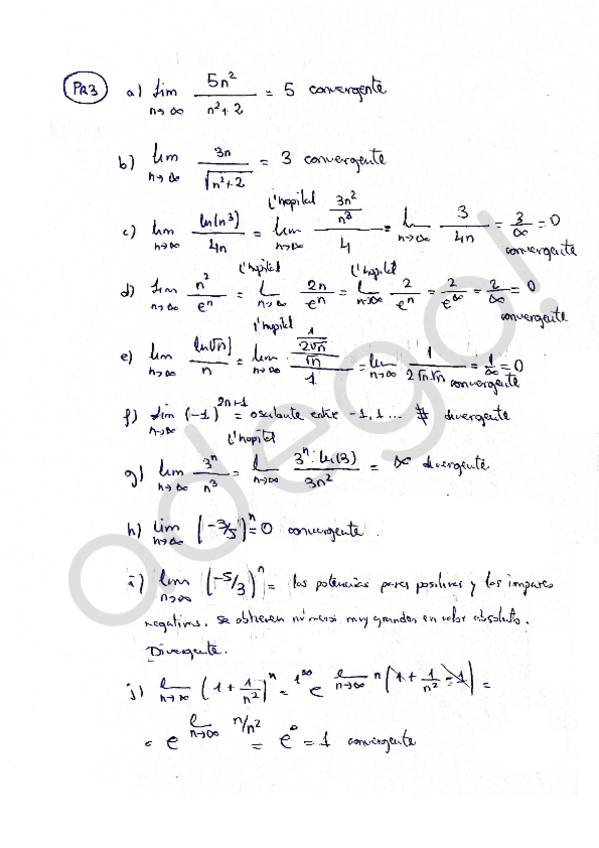 PR3 a) lim n→∞ 5n²/(n²+2) = 5 convergente
b) lim n→∞ 3n/√(n²+2) = 3 convergente
c) lim n→∞ ln(n³)/4n = L'hopital lim n→∞ (3n²/n³)/4 = lim n→∞ 3/4n = 3/∞ = 0 convergente
d) lim n→∞ n²/eⁿ = L'hopital lim n→∞ 2n/eⁿ = L'hopital lim n→∞ 2/eⁿ = 2/e^∞ = 2/∞ = 0 convergente
e) lim n→∞ ln(√n)/n = L'hopital lim n→∞ ((1/2√n)/√n)/1 = lim n→∞ 1/(2√n·√n) = 1/∞ = 0 convergente
f) lim n→∞ (-1)^(2n+1) = oscilante entre -1, 1 ... ∄ divergente
g) lim n→∞ 3ⁿ/n³ = L'hopital lim n→∞ 3ⁿ·ln(3)/3n² = ∞ divergente
h) lim n→∞ (-3/5)ⁿ = 0 convergente.
i) lim n→∞ (-5/3)ⁿ = las potencias pares positivas y las impares
negativas. se obtienen números muy grandes en valor absoluto.
Divergente.
j) lim n→∞ (1 + 1/n²)ⁿ = 1^∞ e^(lim n→∞ n(1 + 1/n² - 1)) =
= e^(lim n→∞ n/n²) = e⁰ = 1 convergente
a.dego!